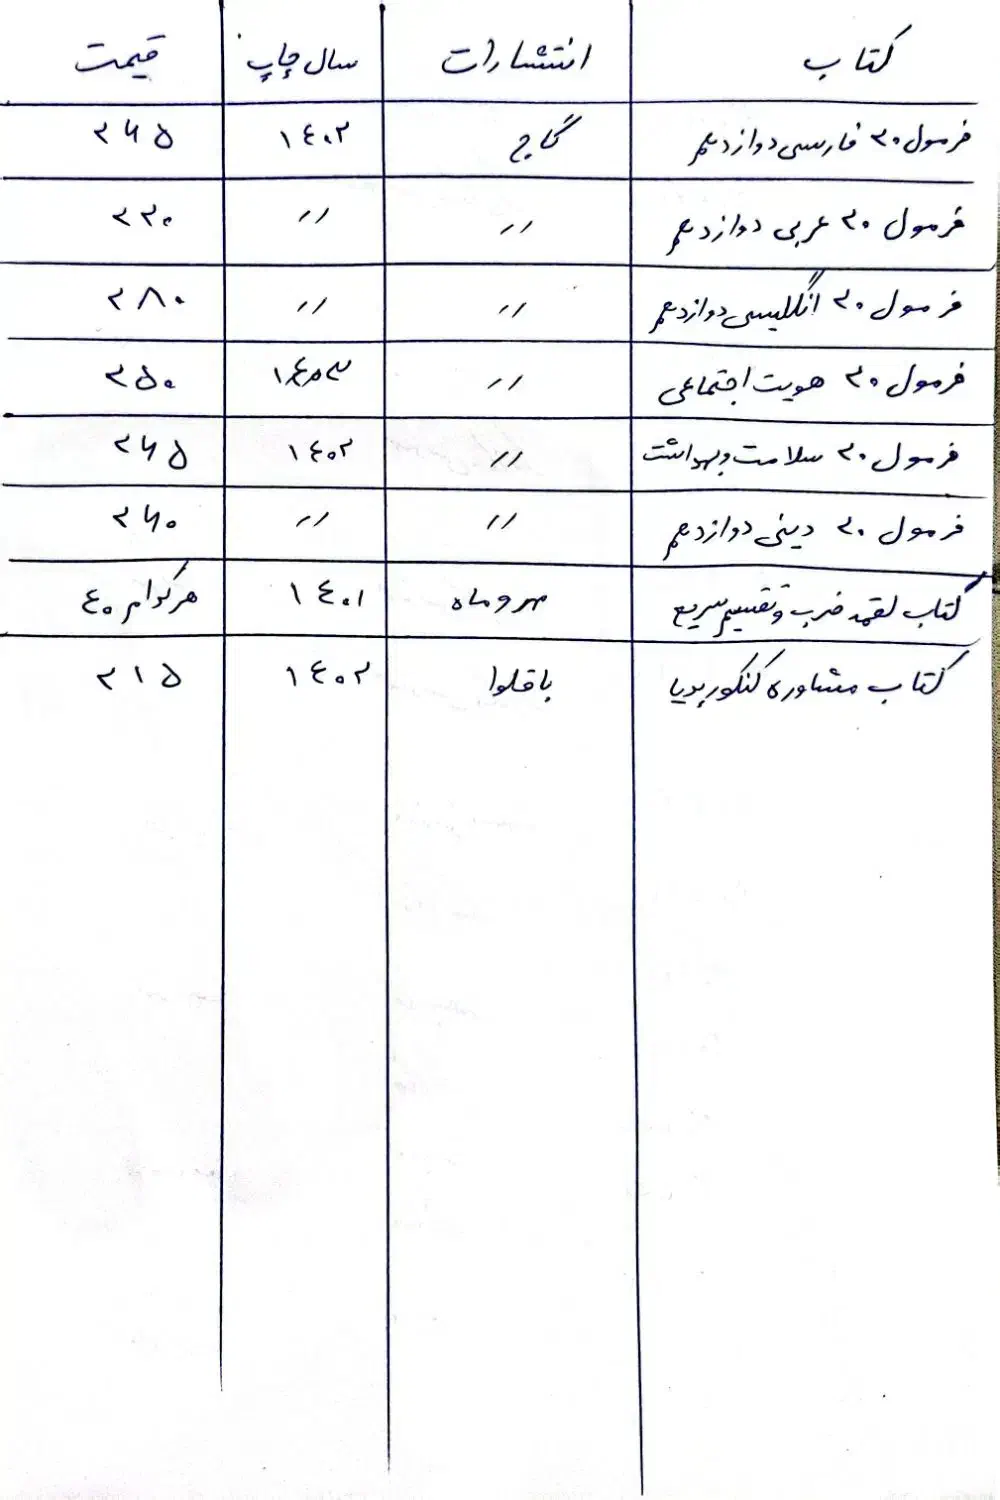 کتاب انتشارات سال چاپ قیمت
فرمول ۲۰ فارسی دوازدهم گاج ۱۴۰۲ ۲۶۵
فرمول ۲۰ عربی دوازدهم // // ۲۲۰
فرمول ۲۰ انگلیسی دوازدهم // // ۲۸۰
فرمول ۲۰ هویت اجتماعی // ۱۴۰۳ ۲۵۰
فرمول ۲۰ سلامت و بهداشت // ۱۴۰۲ ۲۶۵
فرمول ۲۰ دینی دوازدهم // // ۲۶۰
کتاب لقمه ضرب و تقسیم سریع مهروماه ۱۴۰۱ هرکدام ۴۰
کتاب مشاوره کنکورپدیا باقلوا ۱۴۰۲ ۲۱۵